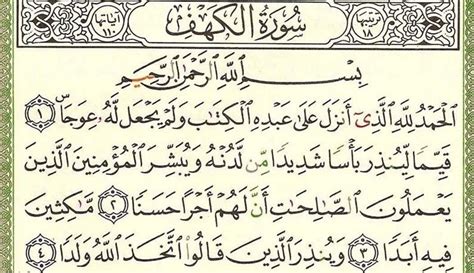 ترتيبها ١٨ سورة الكهف آياتها ١١٠
بِسْمِ ٱللَّهِ ٱلرَّحْمَٰنِ ٱلرَّحِيمِ
ٱلْحَمْدُ لِلَّهِ ٱلَّذِىٓ أَنزَلَ عَلَىٰ عَبْدِهِ ٱلْكِتَٰبَ وَلَمْ يَجْعَل لَّهُۥ عِوَجَاۜ ١
قَيِّمًا لِّيُنذِرَ بَأْسًا شَدِيدًا مِّن لَّدُنْهُ وَيُبَشِّرَ ٱلْمُؤْمِنِينَ ٱلَّذِينَ
يَعْمَلُونَ ٱلصَّٰلِحَٰتِ أَنَّ لَهُمْ أَجْرًا حَسَنًا ٢ مَّٰكِثِينَ
فِيهِ أَبَدًا ٣ وَيُنذِرَ ٱلَّذِينَ قَالُوا۟ ٱتَّخَذَ ٱللَّهُ وَلَدًا ٤